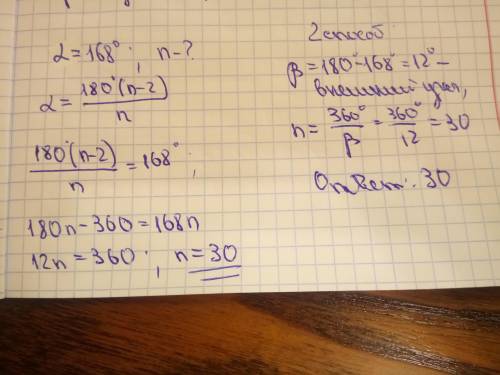 α = 168° ; n - ?
α = 180°(n-2) / n
180°(n-2) / n = 168° ;
180n - 360 = 168n
12n = 360 ; n = 30
2 способ
β = 180° - 168° = 12° -
внешний угол,
n = 360° / β = 360° / 12 = 30
Ответ: 30